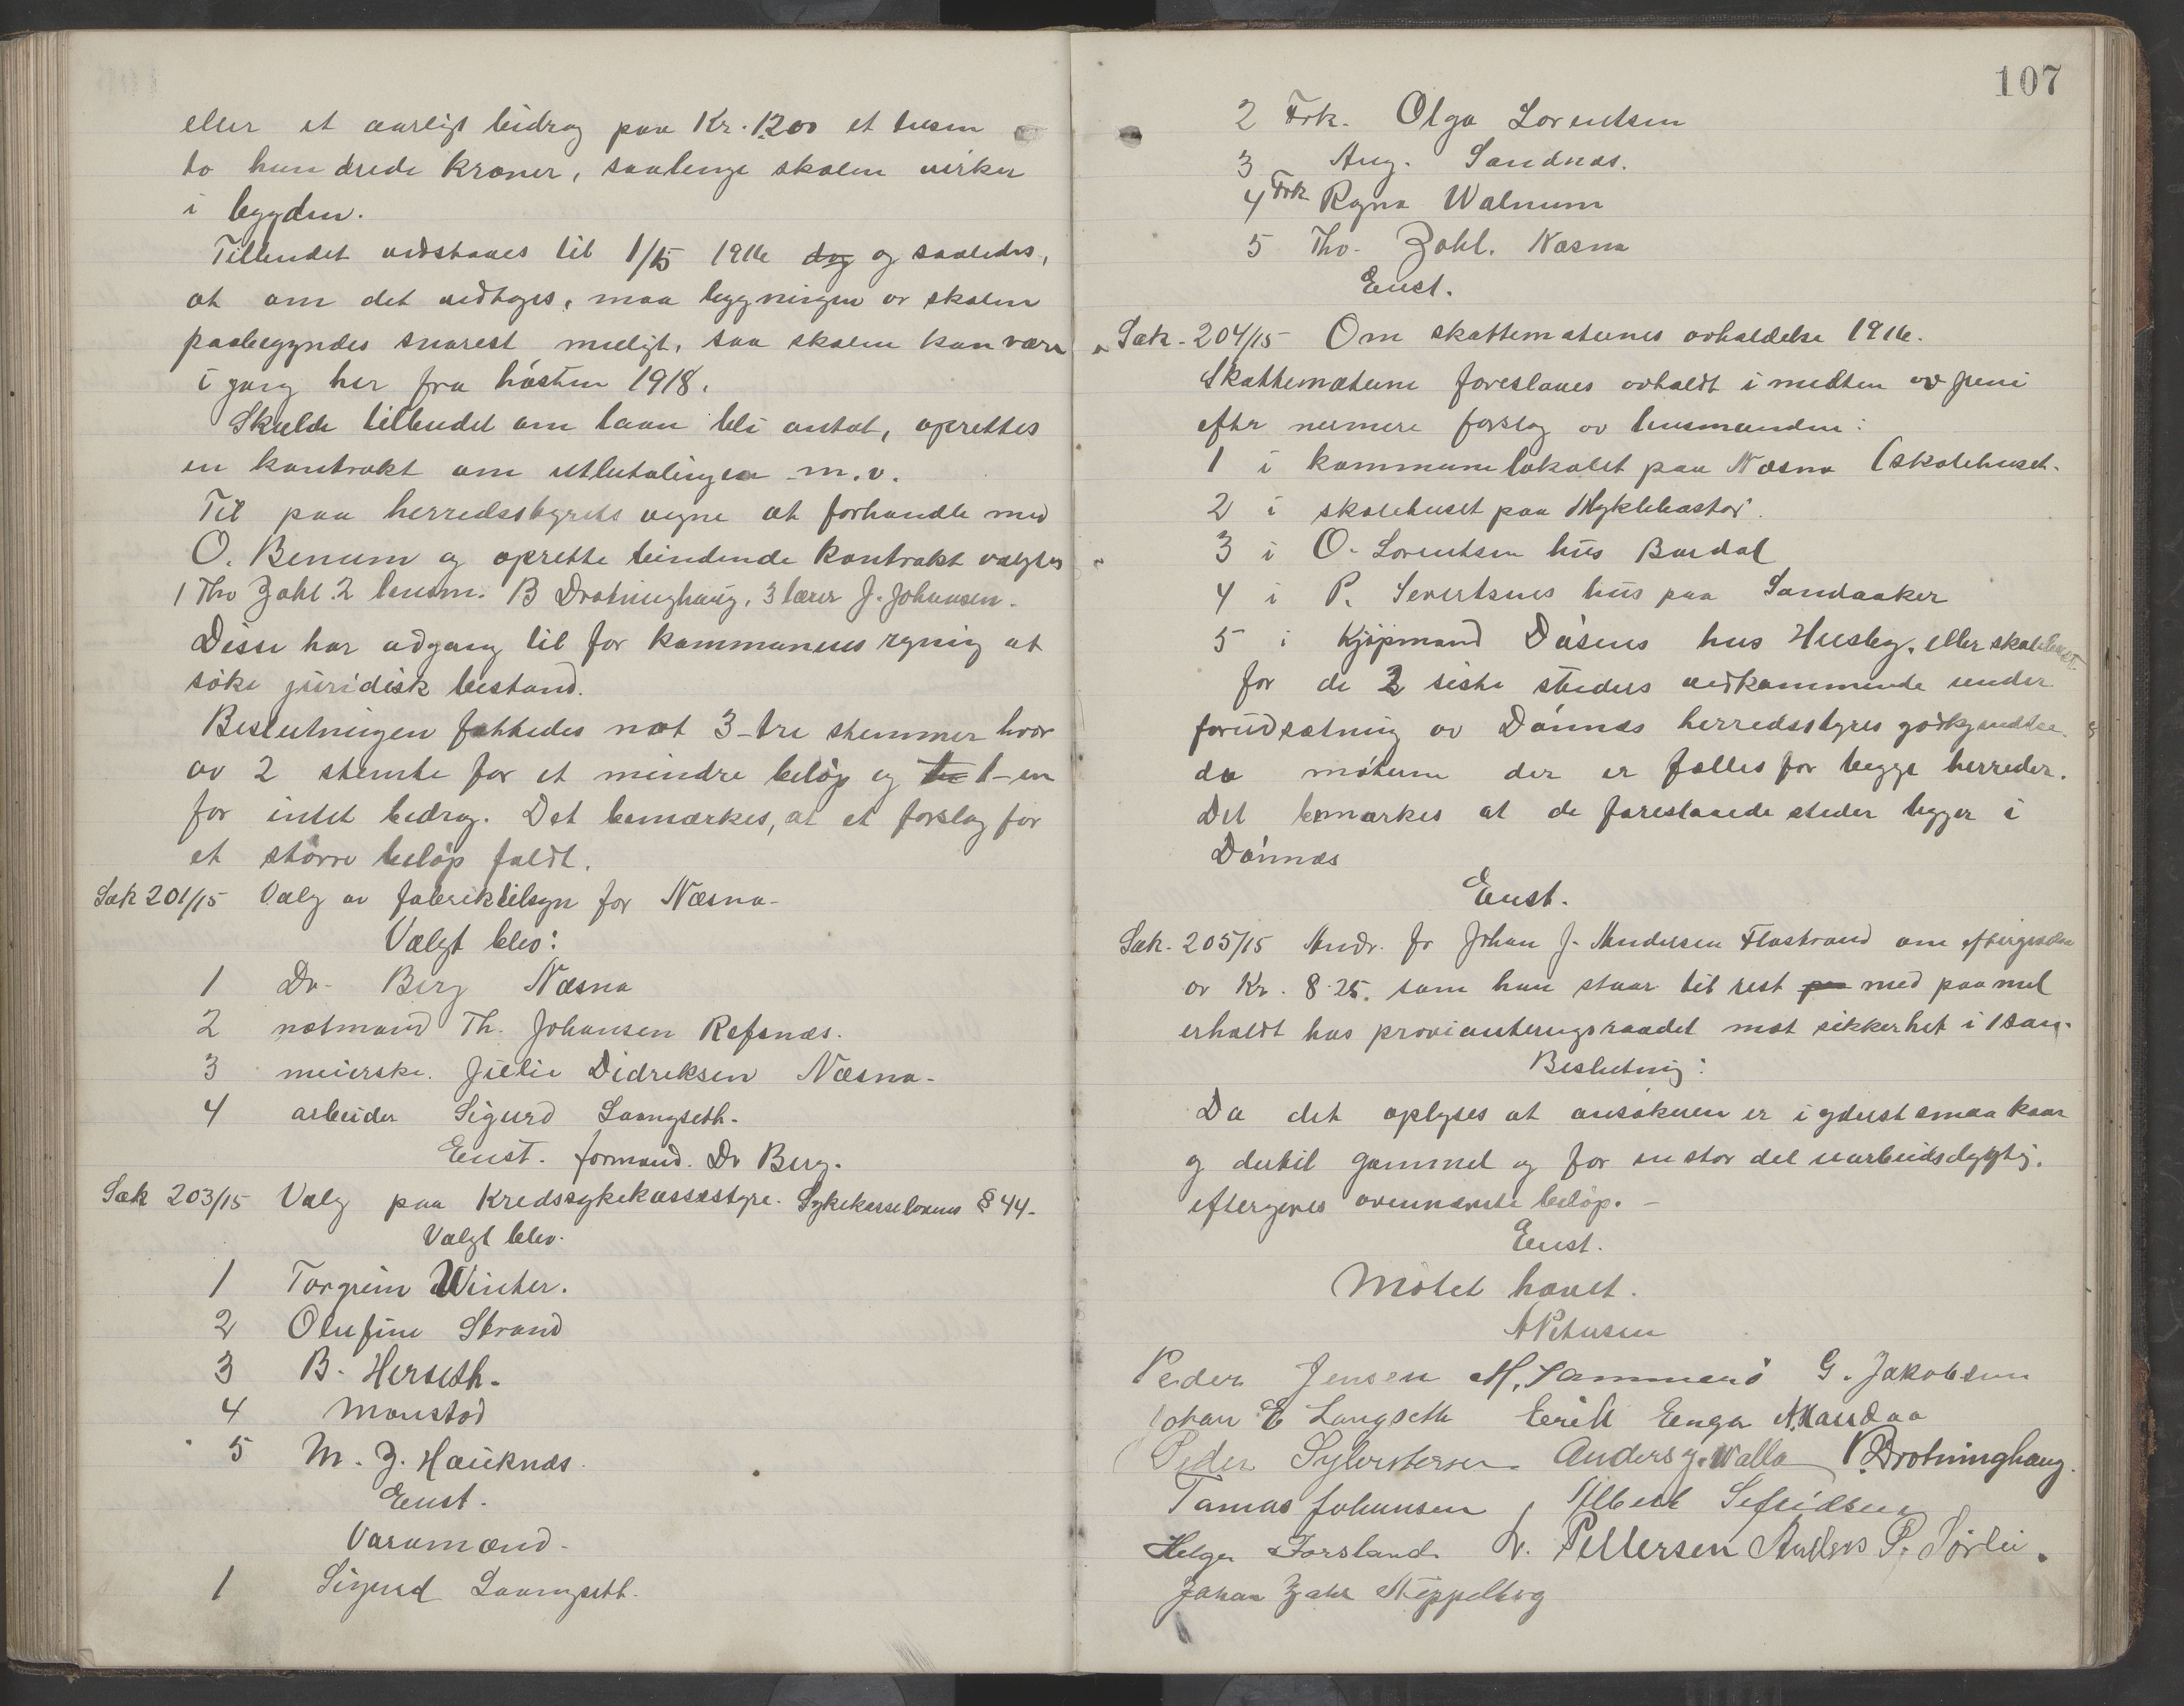 eller et aarligt bidrag paa Kr. 1200 et tusen
to hundrede kroner, saalenge skolen virker
i bygden.
Tilbudet vedstaaes til 1/5 1916 dog og saaledes,
at om det vedtages, maa bygningen av skolen
paabegyndes snarest muligt, saa skolen kan være
i gang her fra høsten 1918.
Skulde tilbudet om laan bli antat, oprettes
en kontrakt om utbetalingen m.v.
Til paa herredsstyrets vegne at forhandle med
O. Benum og oprette bindende kontrakt valgtes
1 Thv Zahl. 2 lensm. B Drotninghaug, 3 lærer J. Johansen.
Disse har adgang til for kommunens regning at
søke juridisk bistand.
Beslutningen fattedes mot 3-tre stemmer hvor
av 2 stemte for et mindre beløp og 1-en
for intet bidrag. Det bemærkes, at et forslag for
et større beløp faldt.
Sak 201/15 Valg av fabriktilsyn for Næsna-
Valgt blev:
1 Dr. Berg Næsna
2 notmand Th. Johansen Refsnæs.
3 meierske. Julie Didreksen Næsna-
4 arbeider Sigurd Laangseth.
Enst. formand. Dr Berg.
Sak 203/15 Valg paa Kredssykekassestyre. Sykekasselovens § 44-
Valgt blev.
1 Torgrim Winther.
2 Olufine Strand
3 B. Herseth.
4 Monstad
5 M. J. Hauknæs.
Enst.
Varamænd-
1 Sigurd Laangseth.
107
2 Frk. Olga Lorentsen
3 Aug. Sandnæs.
4 Frk Ragna Walnum
5 Thv. Zahl. Næsna
Enst.
Sak. 204/15 Om skattemøtenes avholdelse 1916.
Skattemøtene foreslaaes avholdt i midten av juni
efter nermere forslag av lensmanden:
1 i kommunelokalet paa Næsna (skolehuset.
2 i skolehuset paa Myklebostad.
3 i O. Lorentsen hus Bardal
4 i P. Severtsens hus paa Sandaaker
5 i Kjøpmand Dåsens hus Husby. eller skolehuset.
for de 2 siste steders vedkommende under
forudsætning av Dønnes herredsstyres godkjendelse.
da møtene der er fælles for begge herreder.
Det bemærkes at de foreslaaede steder ligger i
Dønnæs
Enst.
Sak. 205/15 Andr. fr Johan J. Andersen Flostrand om eftergivelse
av Kr. 8.25. som han staar til rest med paa mel
erholdt hos provianteringsraadet mot sikkerhet i 1 sau.
Beslutning:
Da det oplyses at ansøkeren er i yderst smaa kaar
og dertil gammel og for en stor del uarbeidsdygtig.
eftergives ovennævnte beløp. -
Enst.
Møtet hævet.
A Petersen
Peder Jensen M. Hammerø G. Jakobsen
Johan E Langseth Erik Enga
Peder Sylvestersen Anders J. Walla B. Drotninghaug.
Tomas Johansen, Albert Sefridsen
Helge Forsland. N. Pettersen Anders P. Sørlie.
Johan Zahl Stoppelhog